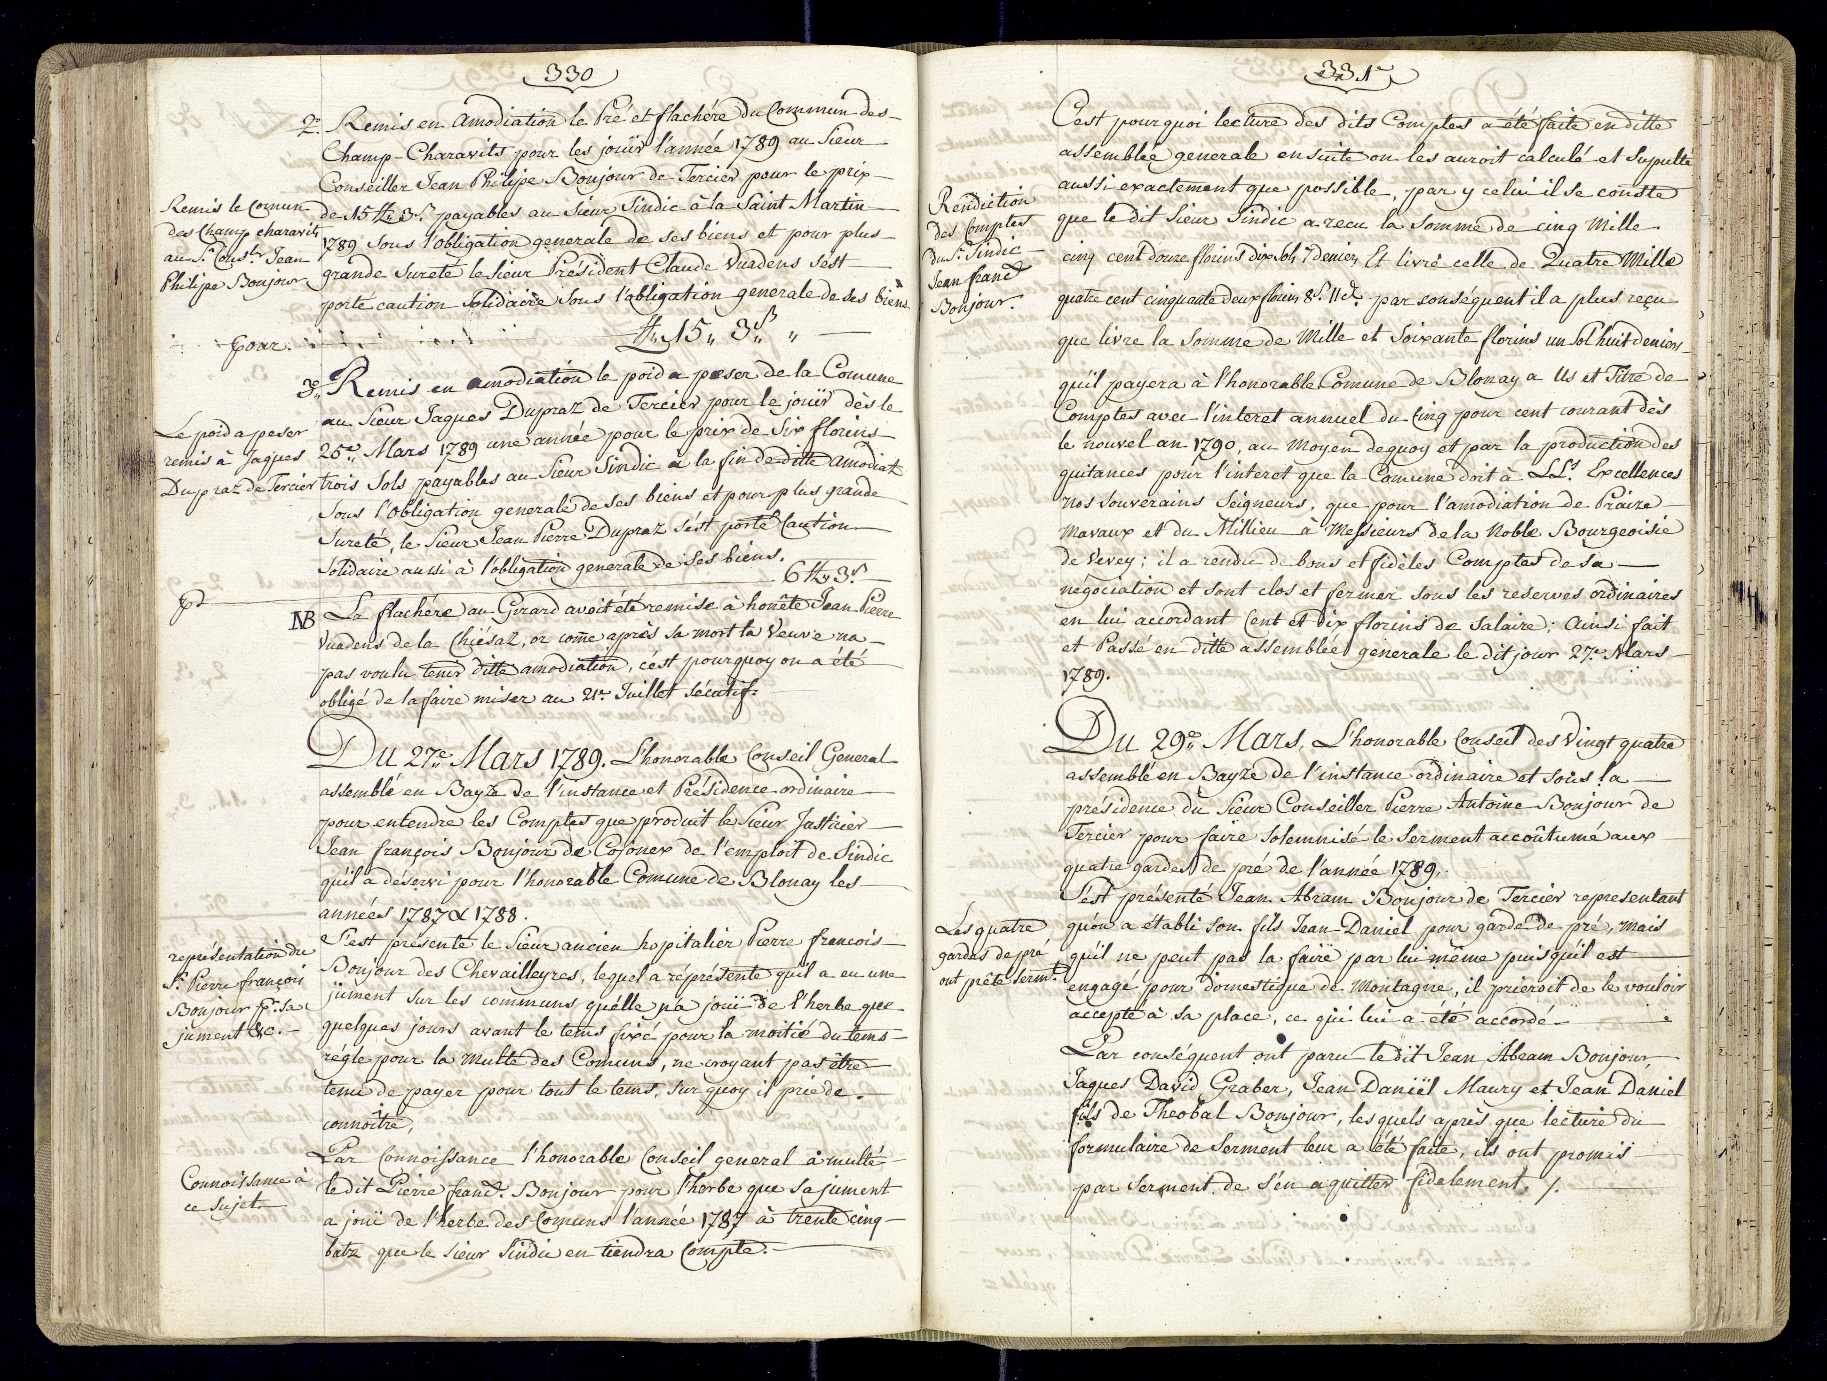 330
2.° Remis en Amodiation le Pré et flachére du Commun des
Champ-Charavits pour les joüir l'année 1789 au Sieur
Conseiller Jean Philipe Bonjour de Tercier pour le prix
Remis le Comun
des Champ charavits
au Sr. Consr. Jean
Philipe Bonjour
de 15 ff 3 s. payables au Sieur Sindic à la Saint Martin
1789 sous l'obligation generale de ses biens et pour plus
grande sureté le sieur Président Claude Vuadens s'est
porté caution solidaire sous l'obligation generale de ses biens
pour. ff 15 „ 3 s „
3.e Remis en amodiation le poid a peser de la Comune
au Sieur Jaques Dupraz de Tercier pour le joüir dès le
Le poid a peser
remis à Jaques
Dupraz de Tercier
25.e Mars 1789 une année pour le prix de Six florins
trois Sols payables au Sieur Sindic a la fin de ditte amodiat
sous l'obligation generale de ses biens et pour plus grande
Sureté, le Sieur Jean Pierre Dupraz s'est porté Caution
Solidaire aussi à l'obligation generale de ses biens.
pr 6 ff 3 s
NB La flachére au Girard avoit été remise à honête Jean Pierre
Vuadens de la Chiésaz, or come après sa mort la Veuve na
pas voulu tenir ditte amodiation, c'est pourquoy on a été
obligé de la faire miser au 21.e Juillet sécutif.
Du 27.e Mars 1789. L'honorable Conseil General
assemblé en Bayze de l'instance et Présidence ordinaire
pour entendre les Comptes que produit le Sieur Justicier
Jean françois Bonjour de Cojonex de l'emploit de Sindic
qu'il a déservi pour l'honorable Comune de Blonay les
années 1787 & 1788.
représentation du
Sr. Pierre françois
Bonjour pr. sa
jument &c.
S'est présenté le Sieur ancien hopitalier Pierre francois
Bonjour des Chevailleyres, lequel a réprésenté qu'il a eu une
jument sur les communs qu'elle n'a joüi de l'herbe que
quelques jours avant le tems fixé pour la moitié du tems
réglé pour la multe des Comuns, ne croyant pas être
tenu de payer pour tout le tems, sur quoy il prie de
connoître,
Connoissance à
ce sujet.
Par Connoissance l'honorable Conseil general a multé
le dit Pierre franc.s Bonjour pour l'herbe que sa jument
a joüi de l'herbe des Comuns l'année 1787 à trente cinq
batz que le Sieur Sindic en tiendra Compte.
331
C'est pourquoi lecture des dits Comptes a été faite en ditte
assemblée generale ensuite on les auroit calculé et Supulté
aussi exactement que possible, par y celui il se conste
Rendiction
des Comptes
du Sr. Sindic
Jean franc.s
Bonjour.
que le dit Sieur Sindic a recu la Somme de cinq Mille
cinq cent douze florins dix Sols 7 deniers Et livré celle de Quatre Mille
quatre cent cinquante deux florins 8 s. 11 d. par conséquent il a plus reçu
que livre la Somme de Mille et Soixante florins un sol huit deniers
qu'il payera à l'honorable Comune de Blonay a Us et Titre de
Comptes avec l'interet annuel du Cinq pour cent courant dès
le nouvel an 1790, au moyen dequoy et par la production des
quitances pour l'interot que la Comune doit à LL.s Excellences
nos Souverains Seigneurs, que pour l'amodiation de Praize
Mavaux et du Millieu à Messieurs de la Noble Bourgeoisie
de Vevey; il a rendu de bons et fidèles Comptes de sa
négociation et sont clos et fermer sous les reserves ordinaires
en lui accordant Cent et Dix florins de Salaire; Ainsi fait
et Passé en ditte assemblée generale le dit jour 27.e Mars
1789.
Du 29.e Mars, L'honorable Conseil des Vingt quatre
assemblé en Bayze de l'instance ordinaire et sous la
présidence du Sieur Conseiller Pierre Antoine Bonjour de
Tercier pour faire Solemnisé le Serment accoûtumé aux
quatre gardes de pré de l'année 1789.
S'est présenté Jean Abram Bonjour de Tercier representant
Les quatre
gardes de pré
ont prêté serm.t
qu'on a établi son fils Jean-Daniel pour garde de pré, mais
qu'il ne peut pas la faire par lui même puisqu'il est
engagé pour domestique de montagne, il prieroit de le vouloir
accepté à sa place, ce qui lui a été accordé
Par conséquent ont paru le dit Jean Abram Bonjour
Jaques David Graber, Jean Daniël Maury et Jean Daniel
fils de Theobal Bonjour, lesquels après que lecture du
formulaire de Serment leur a été faite, ils ont promis
par Serment de s'en aquitter fidelement ./.